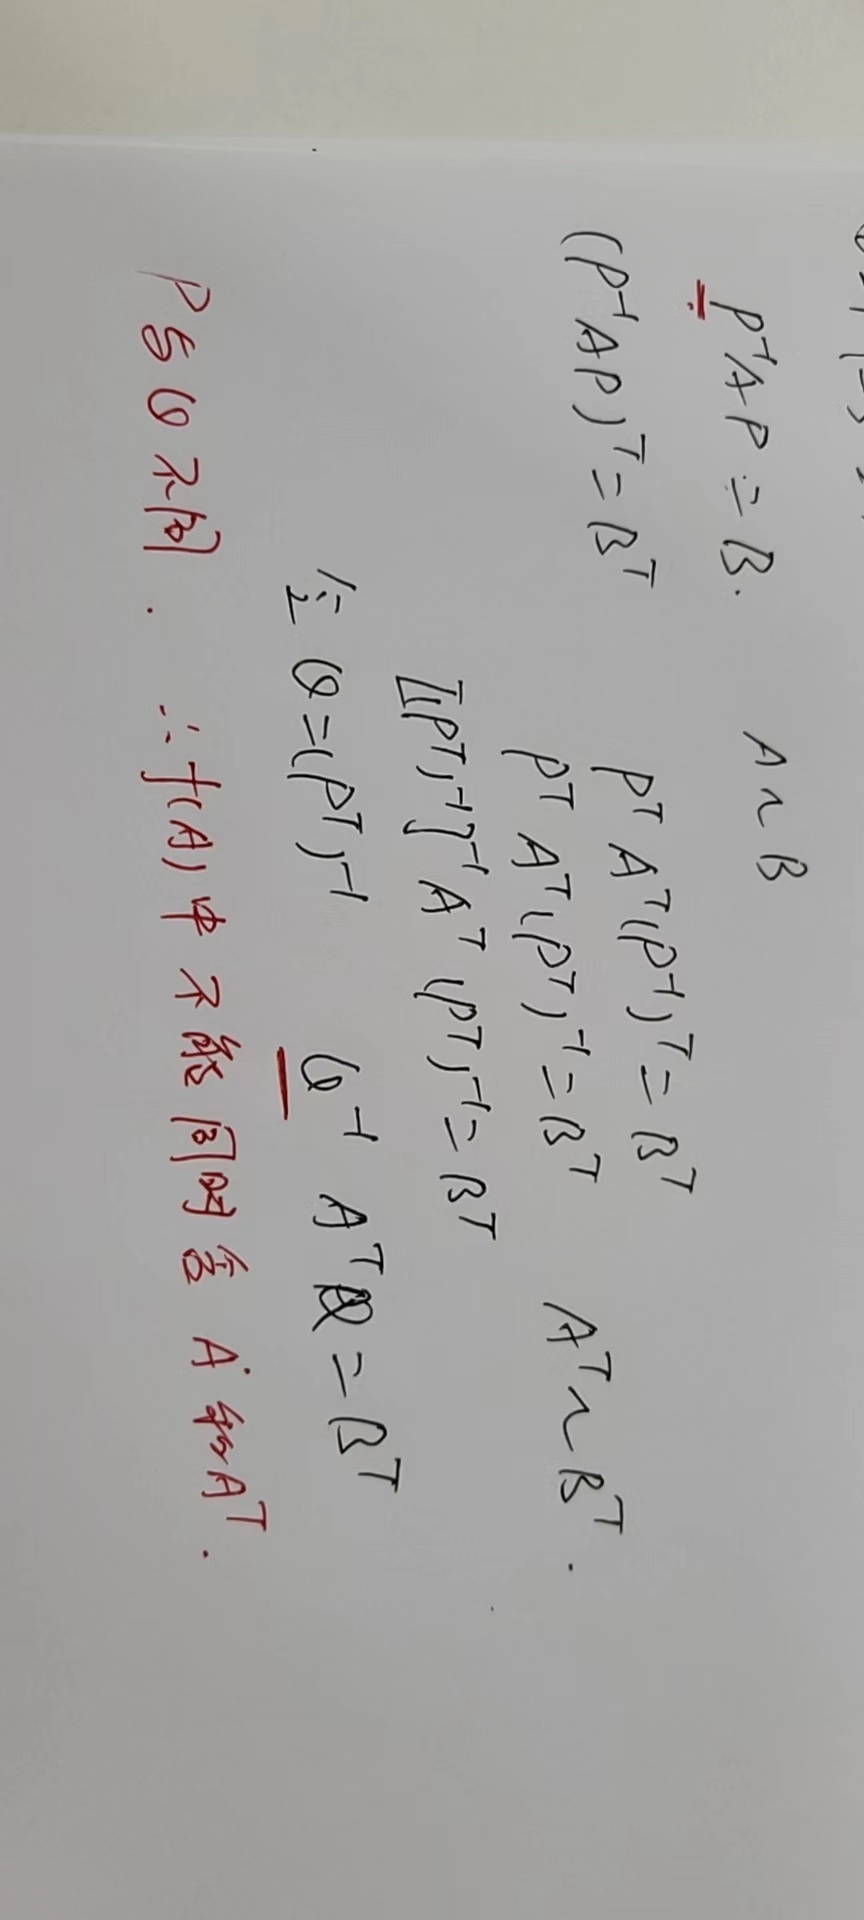 P⁻¹AP = B. A ~ B
(P⁻¹AP)ᵀ = Bᵀ Pᵀ Aᵀ (P⁻¹)ᵀ = Bᵀ
Pᵀ Aᵀ (Pᵀ)⁻¹ = Bᵀ Aᵀ ~ Bᵀ.
[(Pᵀ)⁻¹]⁻¹ Aᵀ (Pᵀ)⁻¹ = Bᵀ
令 Q = (Pᵀ)⁻¹ Q⁻¹ AᵀQ = Bᵀ
P与Q不同. ∴ f(A)中不能同时含 A 和 Aᵀ.